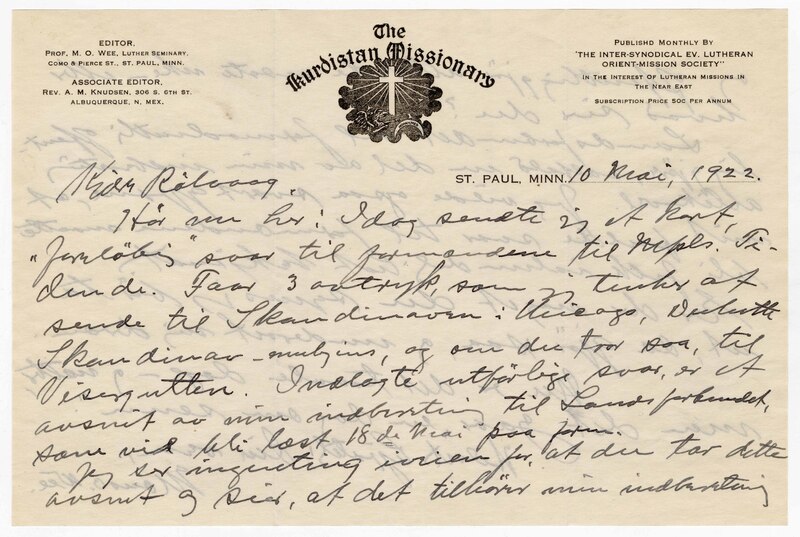 EDITOR,
PROF. M. O. WEE, LUTHER SEMINARY,
COMO & PIERCE ST., ST. PAUL, MINN.
ASSOCIATE EDITOR,
REV. A. M. KNUDSEN, 306 S. 6TH ST.
ALBUQUERQUE, N. MEX.
The
Kurdistan Missionary
PUBLISHD MONTHLY BY
"THE INTER-SYNODICAL EV. LUTHERAN
ORIENT-MISSION SOCIETY"
IN THE INTEREST OF LUTHERAN MISSIONS IN
THE NEAR EAST
SUBSCRIPTION PRICE 50C PER ANNUM
ST. PAUL, MINN. 10 Mai, 1922.
Kjære Rölvaag.
Hör nu her! Idag sendte jeg et kort,
"foreløbig" svar til formændene til Mpls. Ti-
dende. Faar 3 avtryk, som jeg tenker at
sende til Skandinaven i Chicago, Duluth
Skandinav, og om du tror saa, til
Visergutten. Indlagte utförlige svar, er et
avsnit av min indberetning til Landsforbundet,
som vil bli læst 18de Mai paa form.
Jeg ser ingenting iveien for, at du tar dette
avsnit og sier, at det tilhører min indberetning